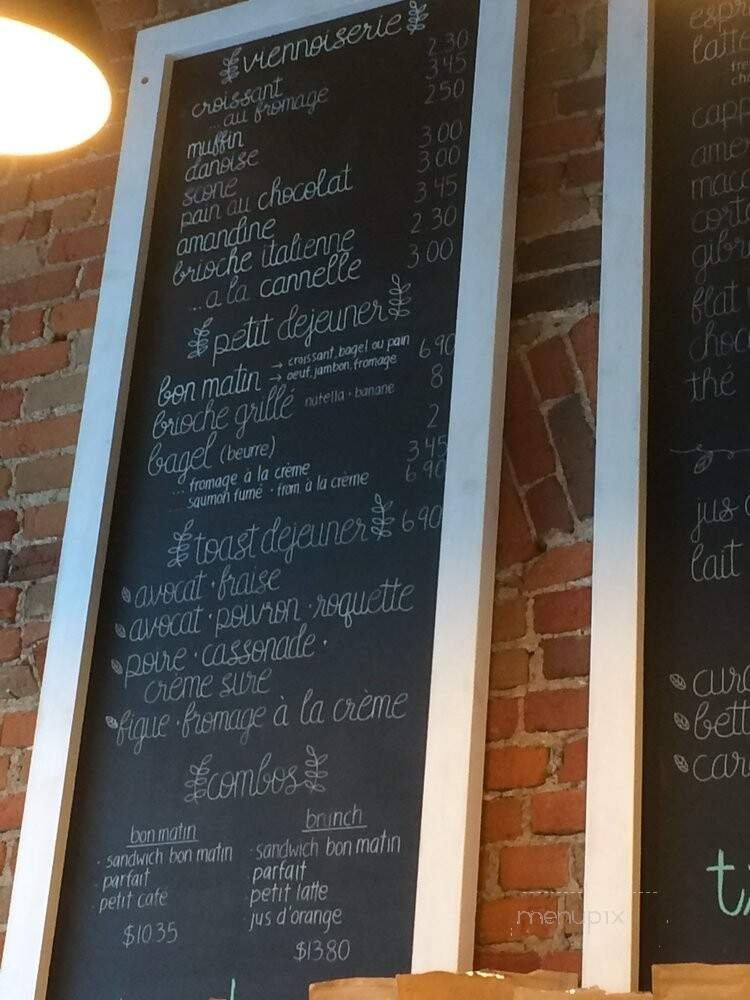 viennoiserie
croissant 2.30
...au fromage 3.45
muffin 2.50
danoise
scone 3.00
pain au chocolat 3.00
amandine 3.45
brioche italienne 2.30
...a la cannelle 3.00
petit dejeuner
bon matin → croissant, bagel ou pain 6.90
→ oeuf, jambon, fromage
brioche grillé nutella · banane 8
bagel (beurre) 2
... fromage à la crème 3.45
... saumon fumé · from à la crème 6.90
toast dejeuner 6.90
avocat · fraise
avocat · poivron · roquette
poire · cassonade ·
crème sure
figue · fromage à la crème
combos
bon matin
· sandwich bon matin
· parfait
· petit café
$10.35
brunch
· sandwich bon matin
parfait
petit latte
jus d'orange
$13.80
latte
flat
thé
jus
lait
menupix